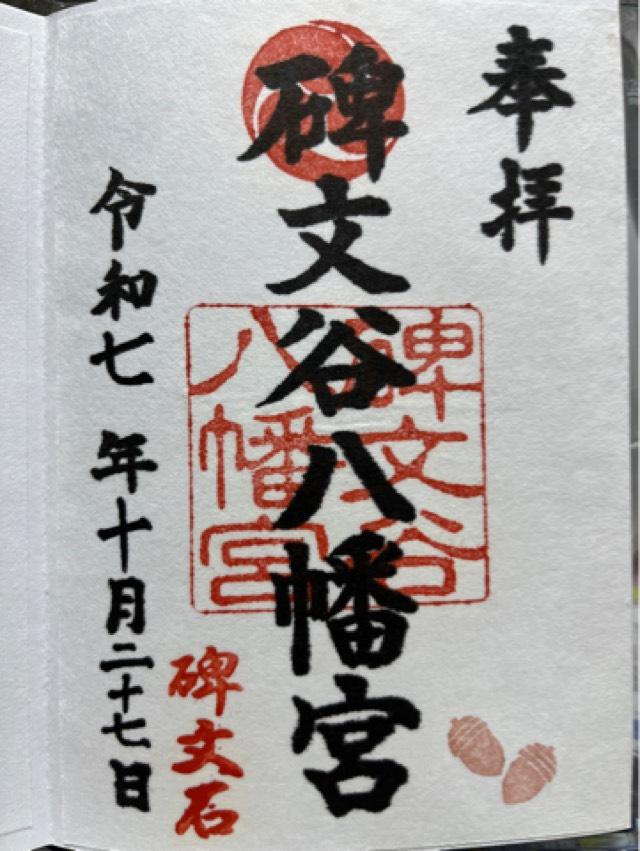 奉拝
碑文谷八幡宮
碑文谷
八幡宮
碑文石
令和七年十月二十七日